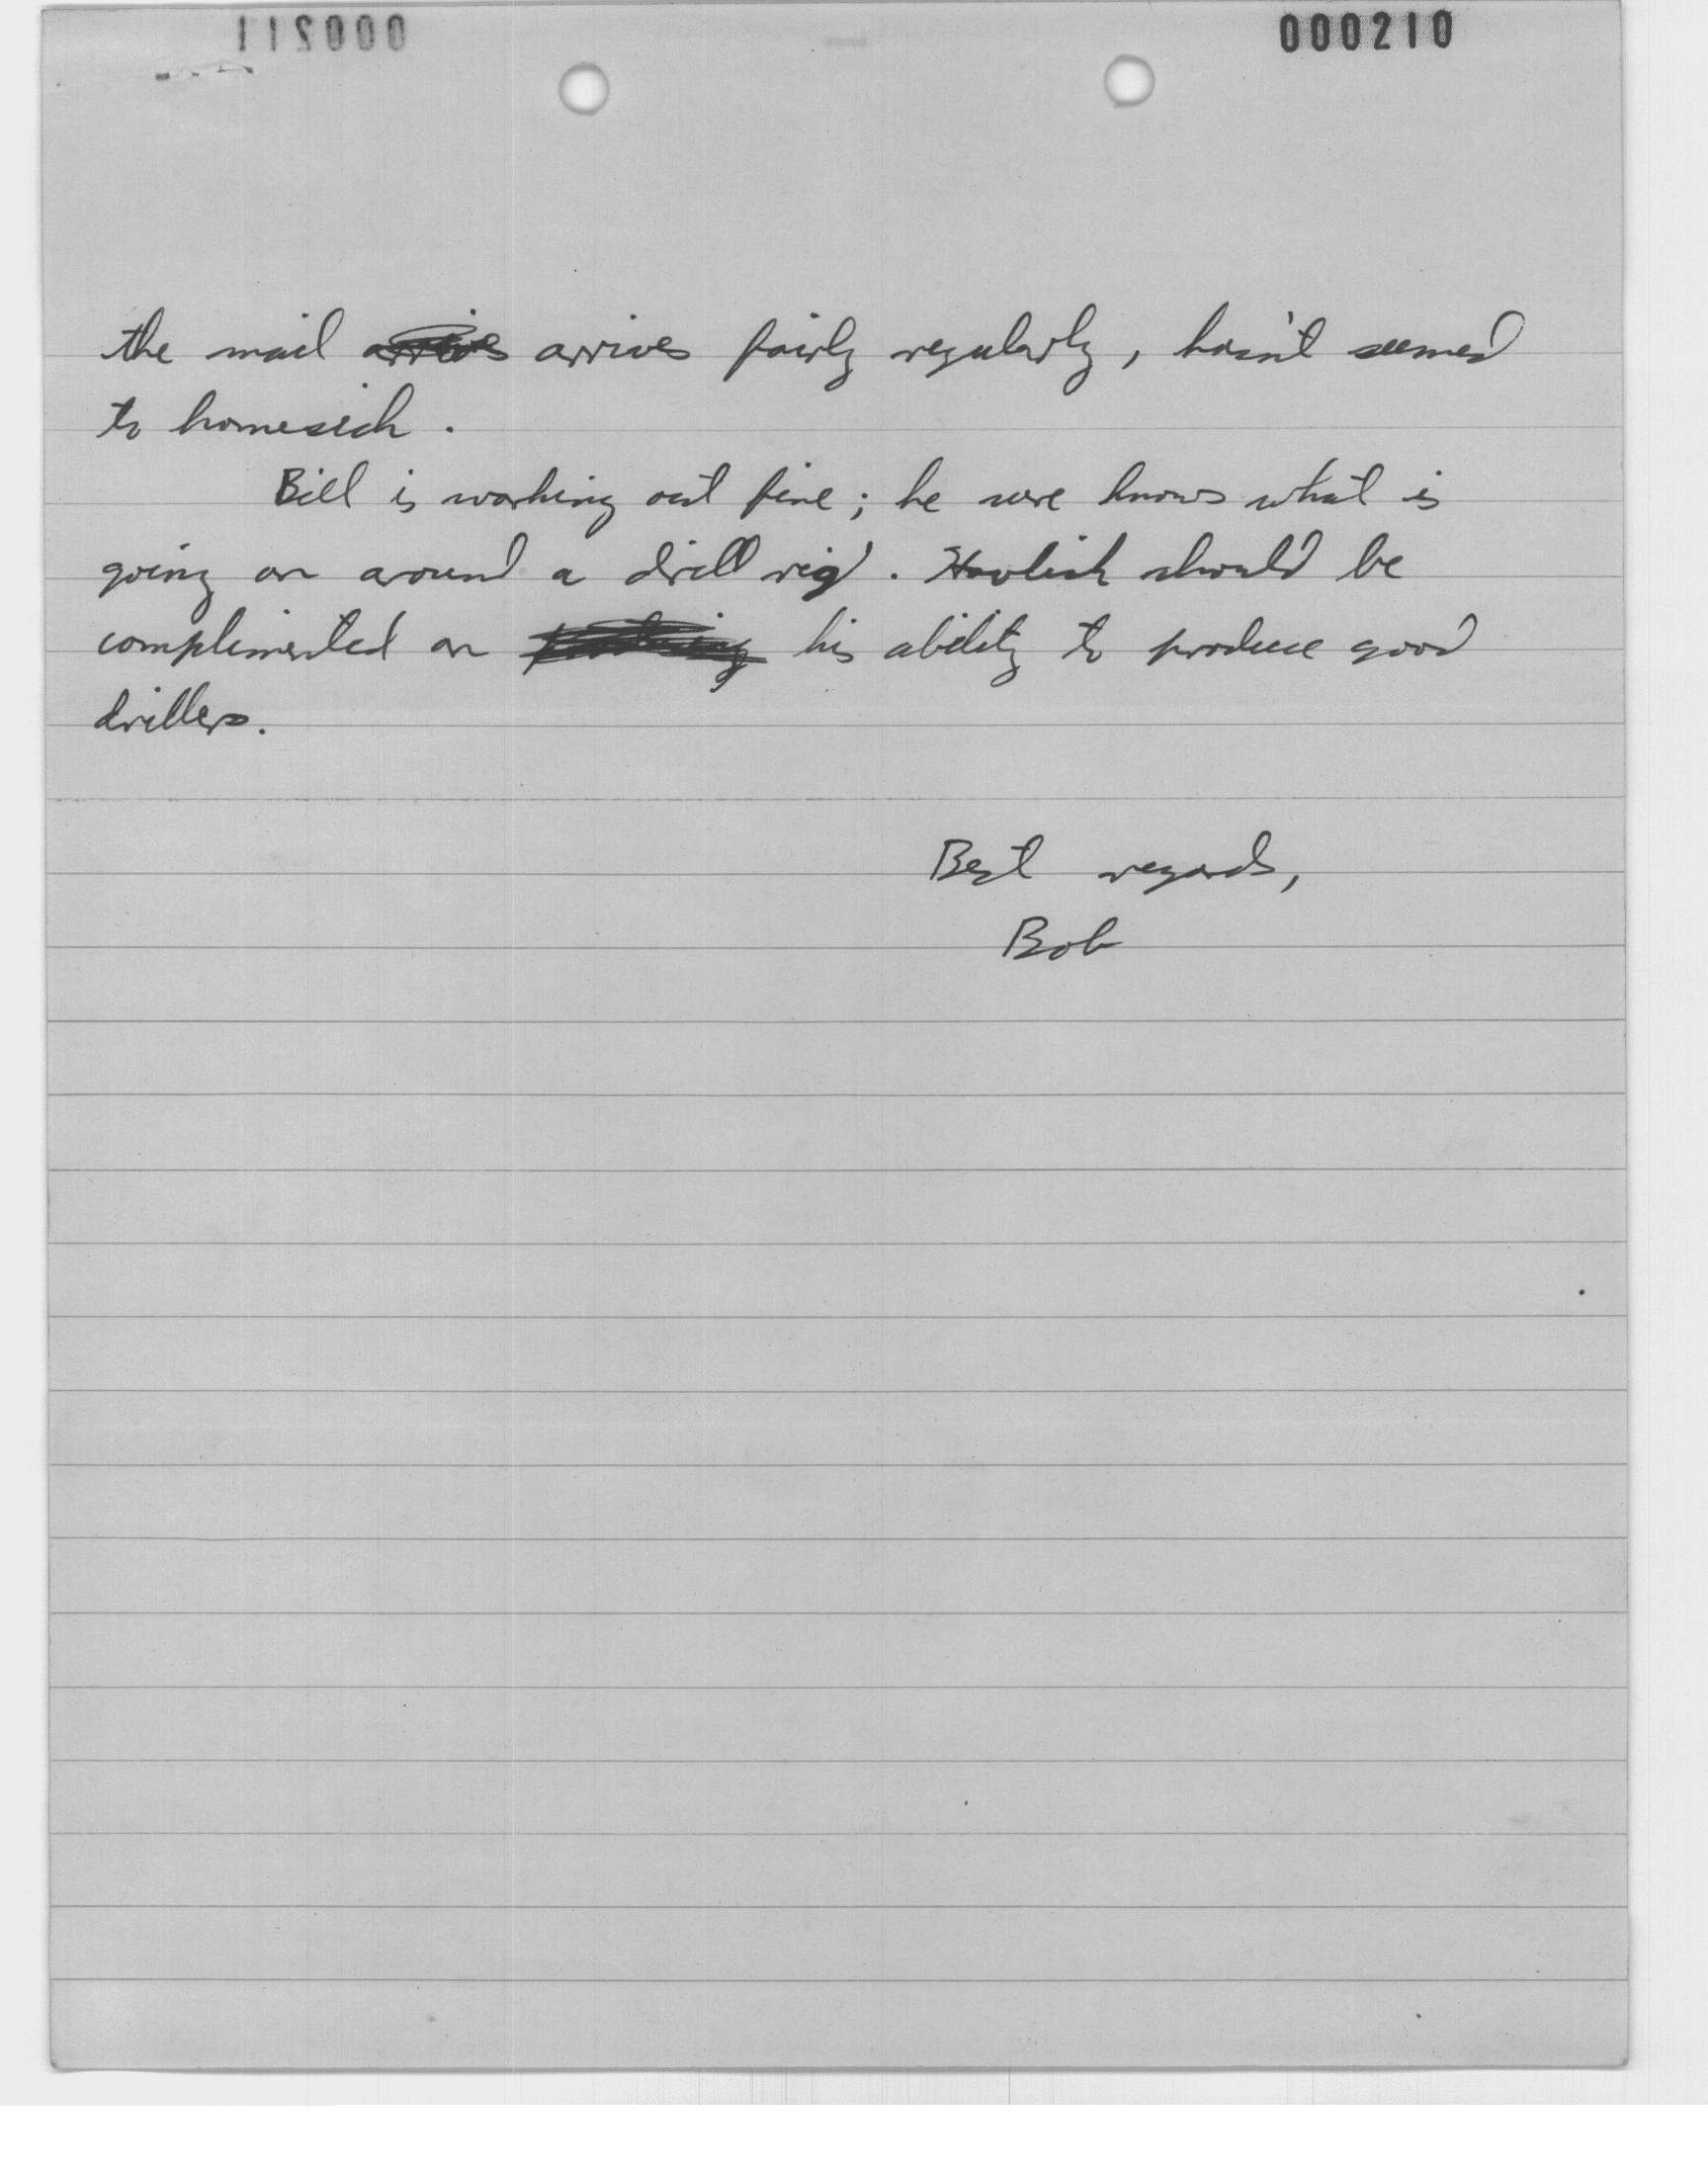 000210
the mail arrives fairly regularly, hasn't seemed
to homesick.
Bill is working out fine; he sure knows what is
going on around a drill rig. should be
complimented on his ability to produce good
drillers.
Best regards,
Bob